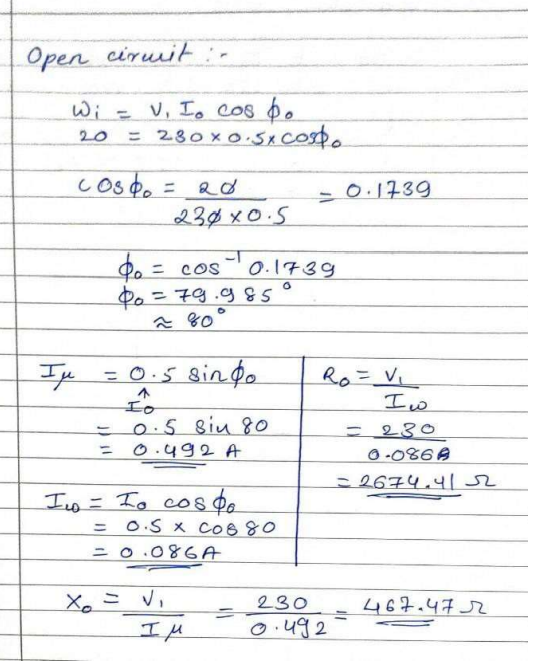 Open circuit :-
Wi = V₁ I₀ cos ϕ₀
20 = 230 × 0.5 × cosϕ₀
cosϕ₀ = 20 / 230 × 0.5 = 0.1739
ϕ₀ = cos⁻¹ 0.1739
ϕ₀ = 79.985°
≈ 80°
Iμ = 0.5 sinϕ₀
↑
I₀
= 0.5 sin 80
= 0.492 A
Iω = I₀ cosϕ₀
= 0.5 × cos 80
= 0.086A
R₀ = V₁ / Iω
= 230 / 0.086
= 2674.41 Ω
X₀ = V₁ / Iμ = 230 / 0.492 = 467.47 Ω